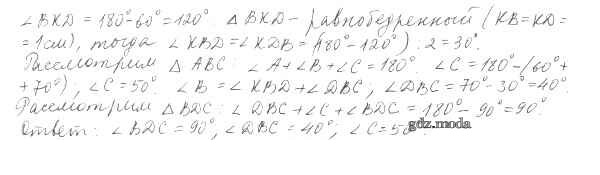 ∠BKD = 180°-60°=120°. △ BKD - равнобедренный (KB=KD=
=1см), тогда ∠KBD=∠KDB=(180°-120°):2=30°.
Рассмотрим △ABC: ∠A+∠B+∠C=180°. ∠C=180°-(60°+
+70°), ∠C=50°. ∠B=∠KBD+∠DBC; ∠DBC=70°-30°=40°.
Рассмотрим △BDC: ∠DBC+∠C+∠BDC=180°-90°=90°.
Ответ: ∠BDC=90°, ∠DBC=40°; ∠C=50°.
gdz.moda